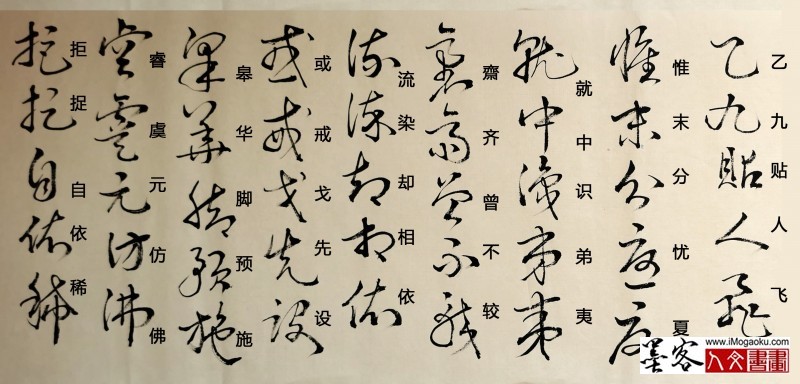 乙九贴人飞
惟末分忧夏
就中识弟夷
齋齐曾不较
流染却相依
或戒戈先设
皋华脚预施
睿虞元仿佛
拒捉自依稀
墨客
www.iMogaoku.com
人文書畫